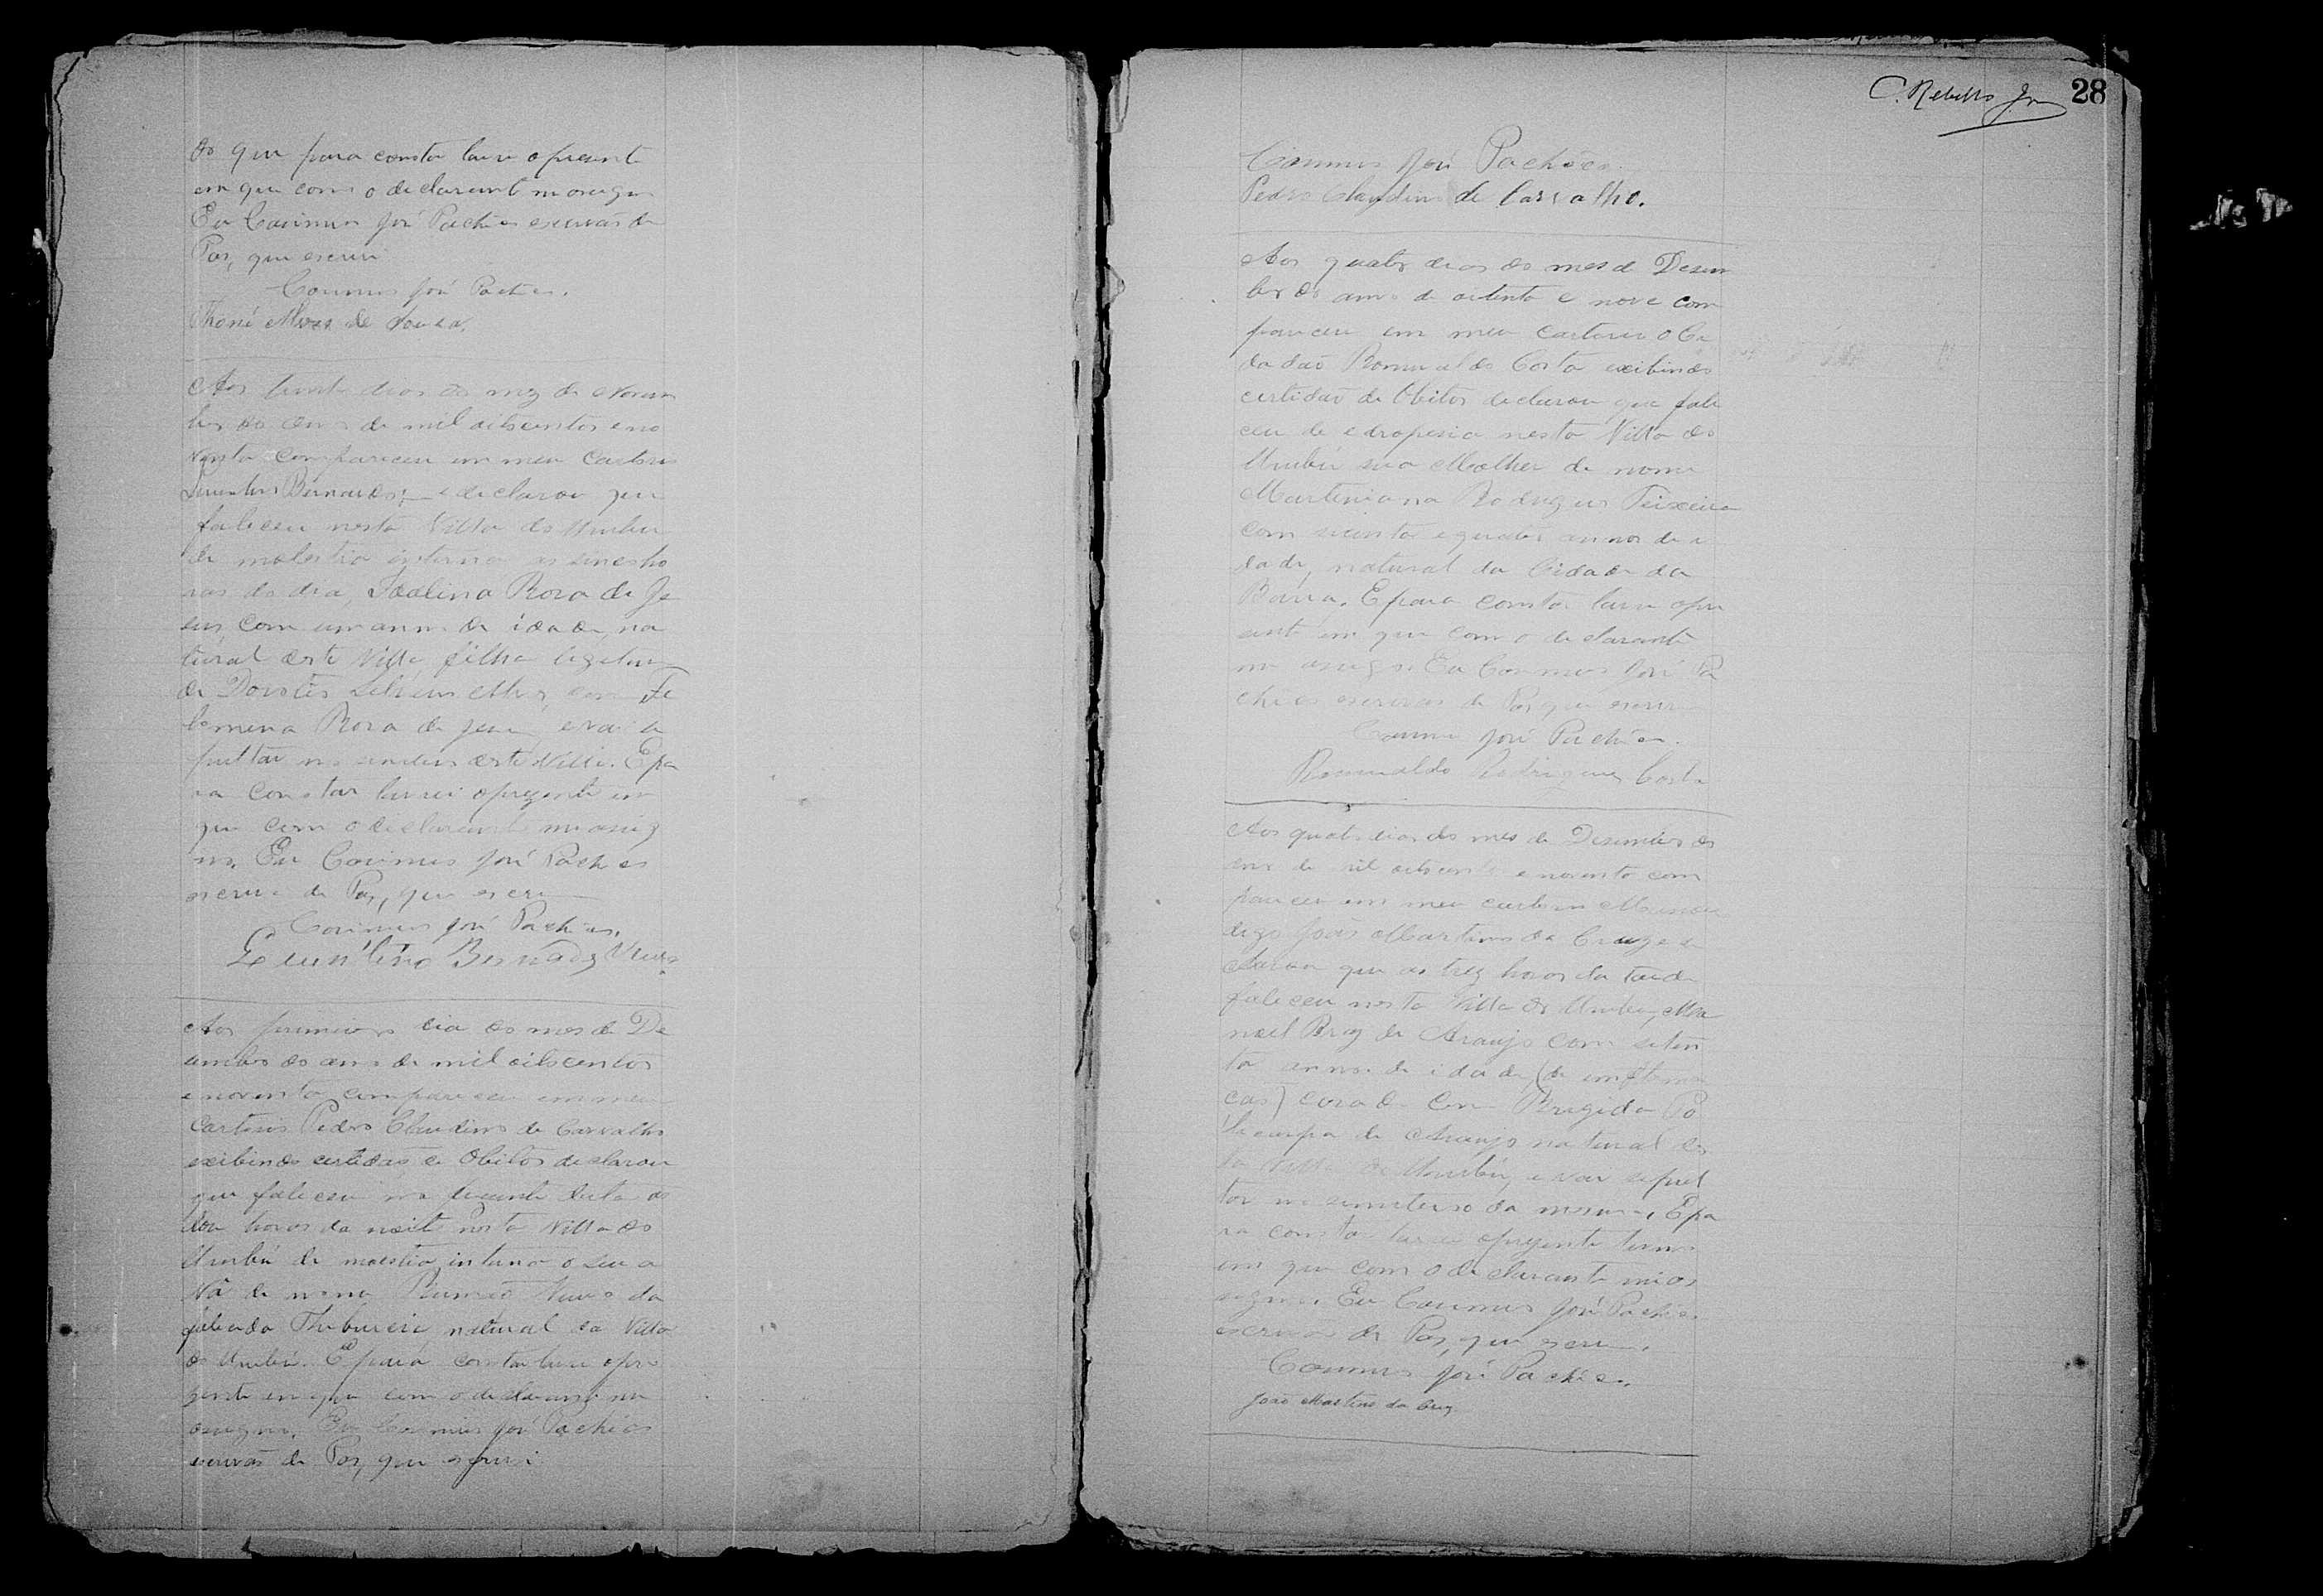 do que para constar lavrei o presente
em que com o declarante me asigno
Eu Cosimiro José Pachêco escrivão de
Paz, que escrevi
José Pachêco.
Alves de Souza.
Aos trinta dias do mez de Novem
bro do anno de mil oitocentos e no
venta compareceu em meu Cartorio
Bernardes; e declarou que
faleceu nesta Villa do Urubu
de molestia interna as sinco ho
ras do dia, Idalina Rosa de Je
sus, com um anno de idade, na
tural desta Villa, filha legitima
de Alves, com Fe
lomena Rosa de Jesus, e vai se
pultar no desta Villa. E pa
ra constar lavrei o prezente em
que com o declarante me asig
no. Eu José Pachêco
de Paz, que escrevi
José Pachêco.
Bernades
Aos primeiro dia do mes de De
sembro do anno de mil oitocentos
e noventa compareceu em meu
Cartorio Pedro Claudino de Carvalho
exibindo certidão de Obitos declarou
que faleceu na data as
horas da noite nesta Villa do
Urubú de molestia interna o seu a
vô de nome
natural da Villa
do Urubú. E para constar lavrei o pre
zente em que com o declarante me
asigno. Eu José Pachêco
escrivão de Paz, que escrevi
28
José Pachêco.
Pedro Claudino de Carvalho.
Aos quatro dias do mes de Desem
bro do anno de oitenta e nove com
pareceu em meu cartorio o Ci
dadão Romualdo Costa exibindo
certidão de Obitos declarou que fale
ceu de edropesia nesta Villa do
Urubú sua Molher de nome
Martiniana Rodrigues Teixeira
com e quatro annos de i
dade, natural da Cidade da
Barra. E para constar lavrei o pre
sente em que com o declarante
me asigno. Eu José Pa
chêco escrivão de Paz que escrevi
José Pachêco.
Romualdo Rodrigues Costa
Aos quatro dias do mes de Desembro do
anno de mil oitocentos e noventa com
pareceu em meu cartorio
digo João Martins da Cruz e de
clarou que as trez horas da tarde
faleceu nesta Villa do Urubu, Ma
noel Braz de Araujo com seten
ta annos de idade, (de
cas) casado com Brigida Po
licarpa de Araujo natural des
ta Villa do Urubú, e vai sepul
tar no semiterio da mesma. E pa
ra constar lavrei o prezente termo
em que com o declarante me as
signo. Eu José Pachêco
escrivão de Paz, que escrevi.
José Pachêco.
João Martins da Cruz